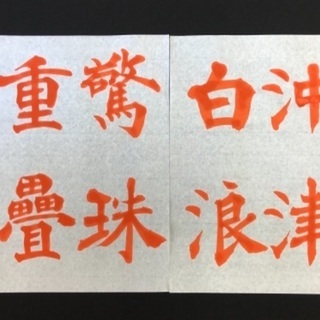 沖津
白浪
驚珠
重疊